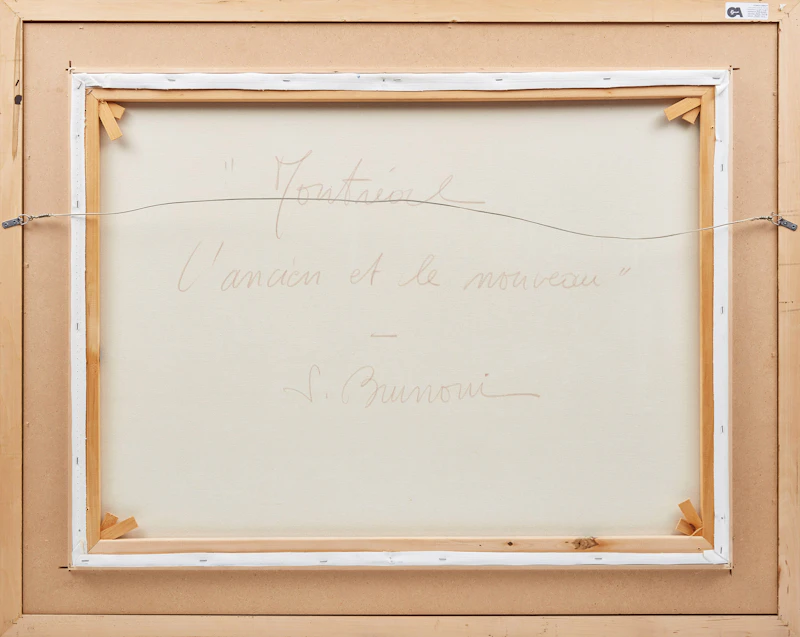 " Montréal
l'ancien et le nouveau "
—
S. Brunoni